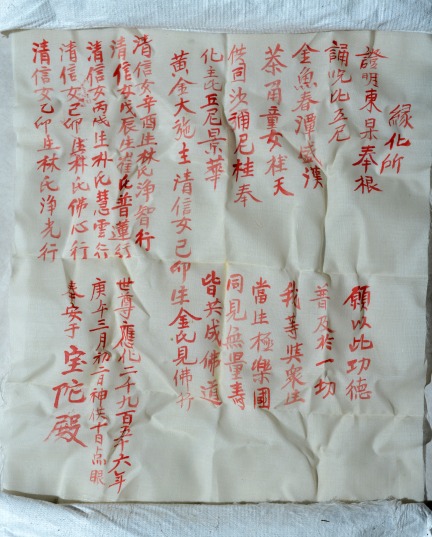 縁化所
證明東杲奉根
誦呪比丘尼
金魚春潭盛漢
茶角童女桂天
供司沙彌尼桂奉
化主比丘尼景華
黃金大施主清信女己卯生金氏見佛行
清信女辛酉生林氏淨智行
清信女戊辰生崔氏普蓮行
清信女丙戌生朴氏慧雲行
清信女己卯生朴氏佛心行
清信女乙卯生林氏淨光行
願以此功德
普及於一切
我等與眾生
當生極樂國
同見無量壽
皆共成佛道
世尊應化二千九百五十六年
庚午三月初二日神供十日点眼
奉安于宝陀殿